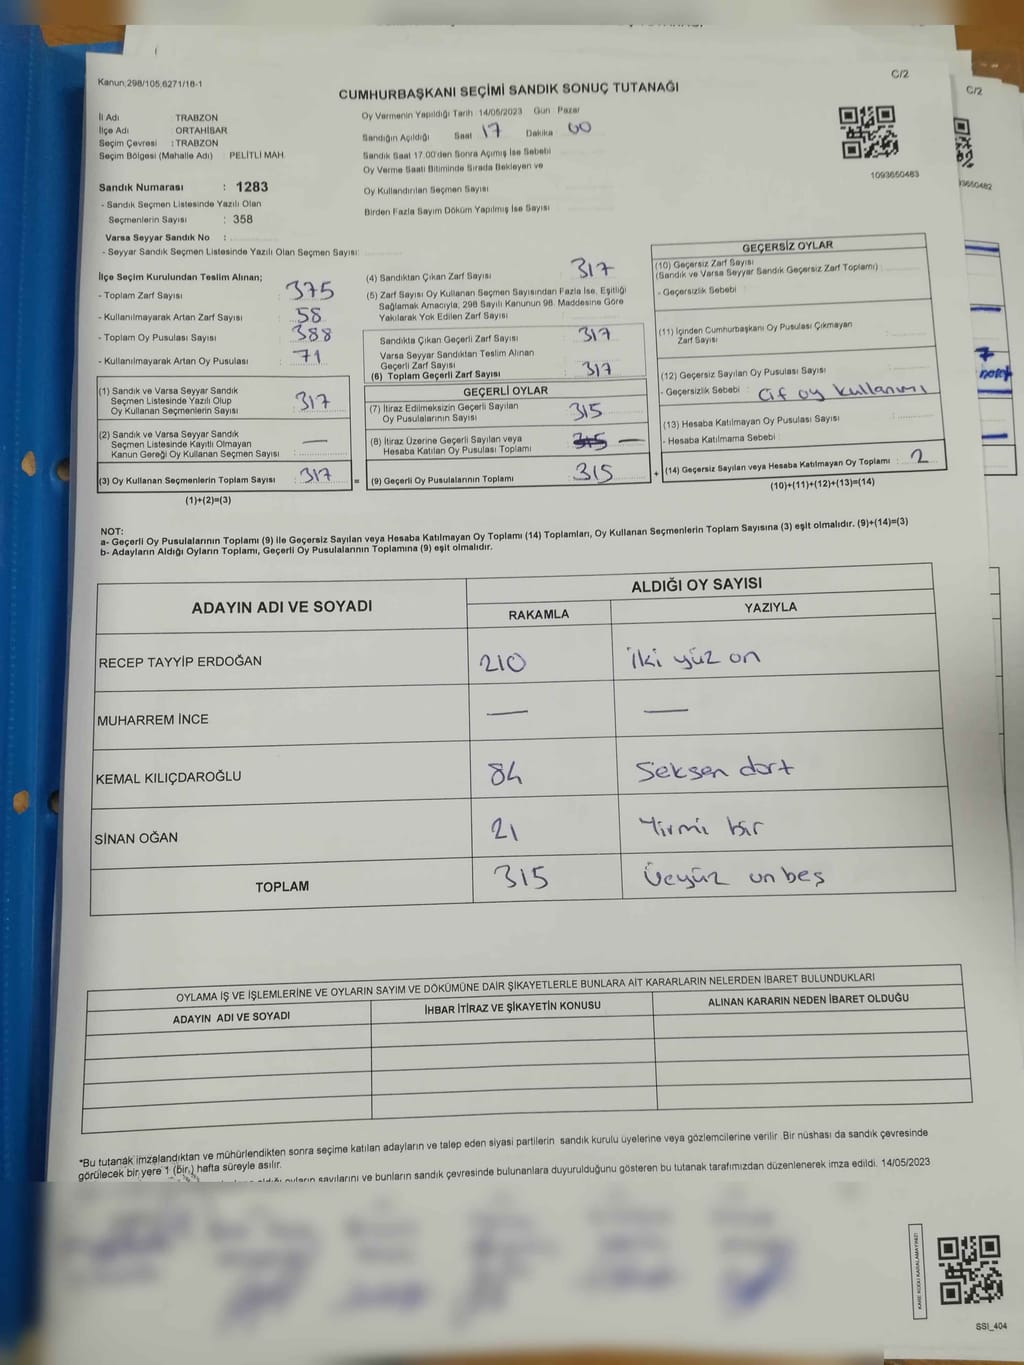 Kanun:298/105,6271/18-1
C/2
CUMHURBAŞKANI SEÇİMİ SANDIK SONUÇ TUTANAĞI
İl Adı TRABZON
İlçe Adı ORTAHİSAR
Seçim Çevresi :TRABZON
Seçim Bölgesi (Mahalle Adı) PELİTLİ MAH.
Oy Vermenin Yapıldığı Tarih 14/05/2023 Gün Pazar
Sandığın Açıldığı Saat 17 Dakika 00
Sandık Saat 17:00'den Sonra Açımış İse Sebebi
Oy Verme Saati Bitiminde Sırada Bekleyen ve
Oy Kullandırılan Seçmen Sayısı
Birden Fazla Sayım Döküm Yapılmış İse Sayısı
1093650483
Sandık Numarası : 1283
- Sandık Seçmen Listesinde Yazılı Olan
Seçmenlerin Sayısı : 358
Varsa Seyyar Sandık No :
- Seyyar Sandık Seçmen Listesinde Yazılı Olan Seçmen Sayısı:
İlçe Seçim Kurulundan Teslim Alınan;
- Toplam Zarf Sayısı : 375
- Kullanılmayarak Artan Zarf Sayısı : 58
- Toplam Oy Pusulası Sayısı : 388
- Kullanılmayarak Artan Oy Pusulası : 71
(1) Sandık ve Varsa Seyyar Sandık
Seçmen Listesinde Yazılı Olup
Oy Kullanan Seçmenlerin Sayısı : 317
(2) Sandık ve Varsa Seyyar Sandık
Seçmen Listesinde Kayıtlı Olmayan
Kanun Gereği Oy Kullanan Seçmen Sayısı : —
(3) Oy Kullanan Seçmenlerin Toplam Sayısı : 317 =
(1)+(2)=(3)
(4) Sandıktan Çıkan Zarf Sayısı : 317
(5) Zarf Sayısı Oy Kullanan Seçmen Sayısından Fazla İse, Eşitliği
Sağlamak Amacıyla, 298 Sayılı Kanunun 98. Maddesine Göre
Yakılarak Yok Edilen Zarf Sayısı
Sandıkta Çıkan Geçerli Zarf Sayısı : 317
Varsa Seyyar Sandıktan Teslim Alınan
Geçerli Zarf Sayısı
(6) Toplam Geçerli Zarf Sayısı : 317
GEÇERLİ OYLAR
(7) İtiraz Edilmeksizin Geçerli Sayılan
Oy Pusulalarının Sayısı : 315
(8) İtiraz Üzerine Geçerli Sayılan veya
Hesaba Katılan Oy Pusulası Toplamı : 315 —
(9) Geçerli Oy Pusulalarının Toplamı : 315 +
GEÇERSİZ OYLAR
(10) Geçersiz Zarf Sayısı
(Sandık ve Varsa Seyyar Sandık Geçersiz Zarf Toplamı) :
- Geçersizlik Sebebi :
(11) İçinden Cumhurbaşkanı Oy Pusulası Çıkmayan
Zarf Sayısı
(12) Geçersiz Sayılan Oy Pusulası Sayısı :
- Geçersizlik Sebebi : Çif oy kullanımı
(13) Hesaba Katılmayan Oy Pusulası Sayısı :
- Hesaba Katılmama Sebebi :
(14) Geçersiz Sayılan veya Hesaba Katılmayan Oy Toplamı : 2
(10)+(11)+(12)+(13)=(14)
NOT:
a- Geçerli Oy Pusulalarının Toplamı (9) ile Geçersiz Sayılan veya Hesaba Katılmayan Oy Toplamı (14) Toplamları, Oy Kullanan Seçmenlerin Toplam Sayısına (3) eşit olmalıdır. (9)+(14)=(3)
b- Adayların Aldığı Oyların Toplamı, Geçerli Oy Pusulalarının Toplamına (9) eşit olmalıdır.
ADAYIN ADI VE SOYADI
ALDIĞI OY SAYISI
RAKAMLA YAZIYLA
RECEP TAYYİP ERDOĞAN 210 İki yüz on
MUHARREM İNCE — —
KEMAL KILIÇDAROĞLU 84 Seksen dört
SİNAN OĞAN 21 Yirmi bir
TOPLAM 315 Üçyüz on beş
OYLAMA İŞ VE İŞLEMLERİNE VE OYLARIN SAYIM VE DÖKÜMÜNE DAİR ŞİKAYETLERLE BUNLARA AİT KARARLARIN NELERDEN İBARET BULUNDUKLARI
ADAYIN ADI VE SOYADI İHBAR İTİRAZ VE ŞİKAYETİN KONUSU ALINAN KARARIN NEDEN İBARET OLDUĞU
*Bu tutanak imzalandıktan ve mühürlendikten sonra seçime katılan adayların ve talep eden siyasi partilerin sandık kurulu üyelerine veya gözlemcilerine verilir. Bir nüshası da sandık çevresinde
görülecek bir yere 1 (bir) hafta süreyle asılır.
oyların sayılarını ve bunların sandık çevresinde bulunanlara duyurulduğunu gösteren bu tutanak tarafımızdan düzenlenerek imza edildi. 14/05/2023
KARE KODU KARALAMAYINIZ!
SSI_404
C/2